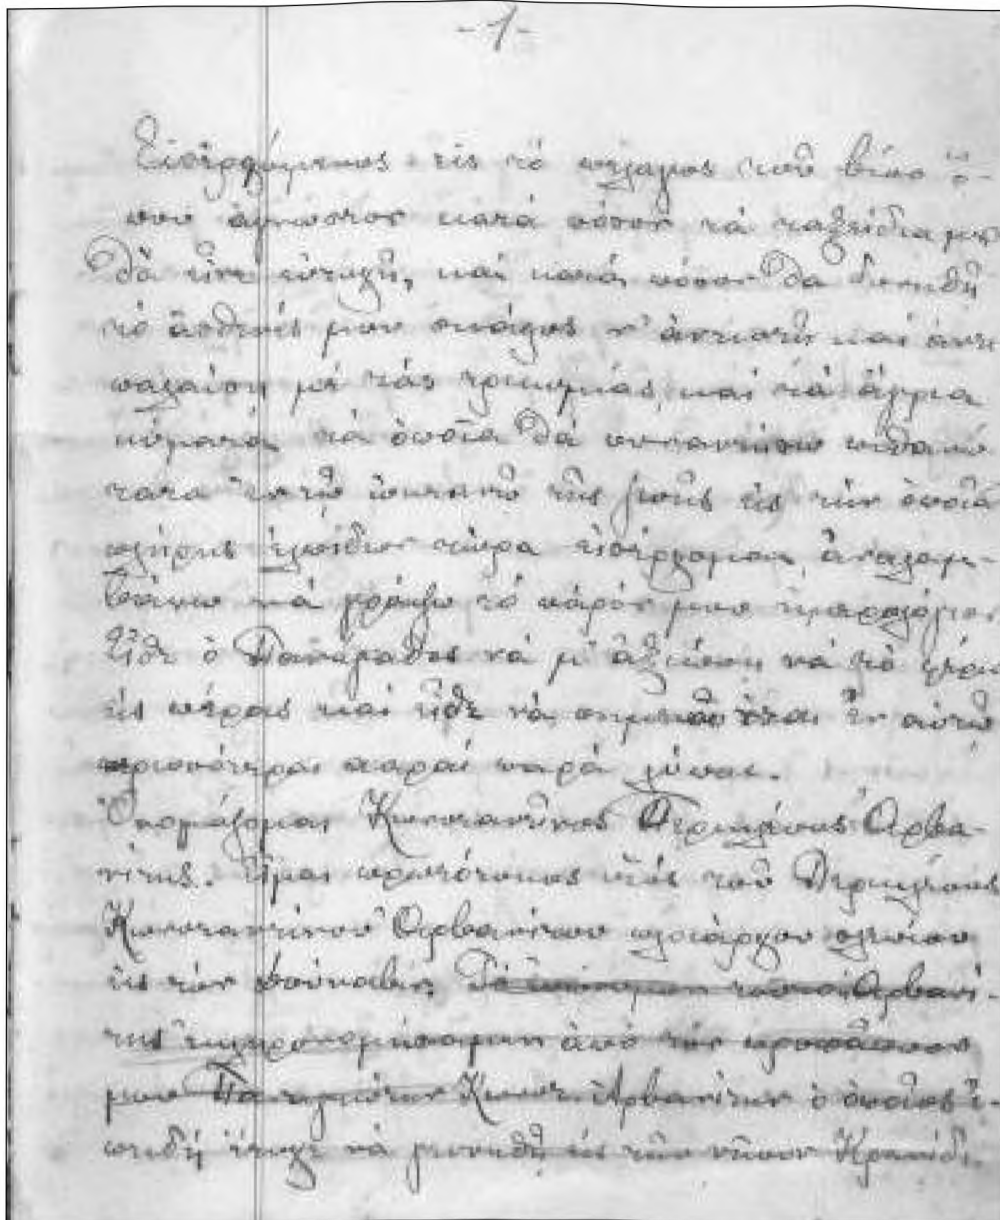 -1-
Εἰσερχόμενος εἰς τὸ πέλαγος τοῦ βίου ὅ-
που ἄγνωστον κατὰ πόσον τὰ ταξείδια μου
θὰ εἶνε εὐτυχῆ, καὶ κατὰ πόσον θὰ δυνηθῇ
τὸ ἀσθενές μου σκάφος ν' ἀντιστῇ καὶ ἀντι
παλαίσῃ μὲ τὰς τρικυμίας, καὶ τὰ ἄγρια
κύματα τὰ ὁποῖα θὰ συναντήσω πιθανώ
τατα ἐν τῷ ὠκεανῷ τῆς ζωῆς εἰς τὴν ὁποία
πλήρης ἐλπίδων τώρα εἰσέρχομαι, ἀναλαμ-
βάνω νὰ γράψω τὸ παρόν μου ἡμερολόγιον
Εἴθε ὁ Πανάγαθος νὰ μ' ἀξιώσῃ νὰ τὸ φέρω
εἰς πέρας καὶ εἴθε νὰ ἐν αὐτῷ
περισσότεραι χαραὶ παρὰ λύπαι.
Ὀνομάζομαι Κωνσταντῖνος Περικλέους Ἀρβα-
νίτης. Εἶμαι πρωτότοκος υἱὸς τοῦ Περικλέους
Κωνσταντίνου Ἀρβανίτου πλοιάρχου
εἰς τὸν Δούναβιν. Τὸ Ἀρβανί-
της ἐκληρονόμησαμεν ἀπὸ τὸν προπάππον
μου Παναγιώτην Κωνστ. Ἀρβανίτην ὁ ὁποῖος ἐ-
πειδὴ ἔτυχε νὰ γεννηθῇ εἰς τὴν νῆσον Κρανίδι